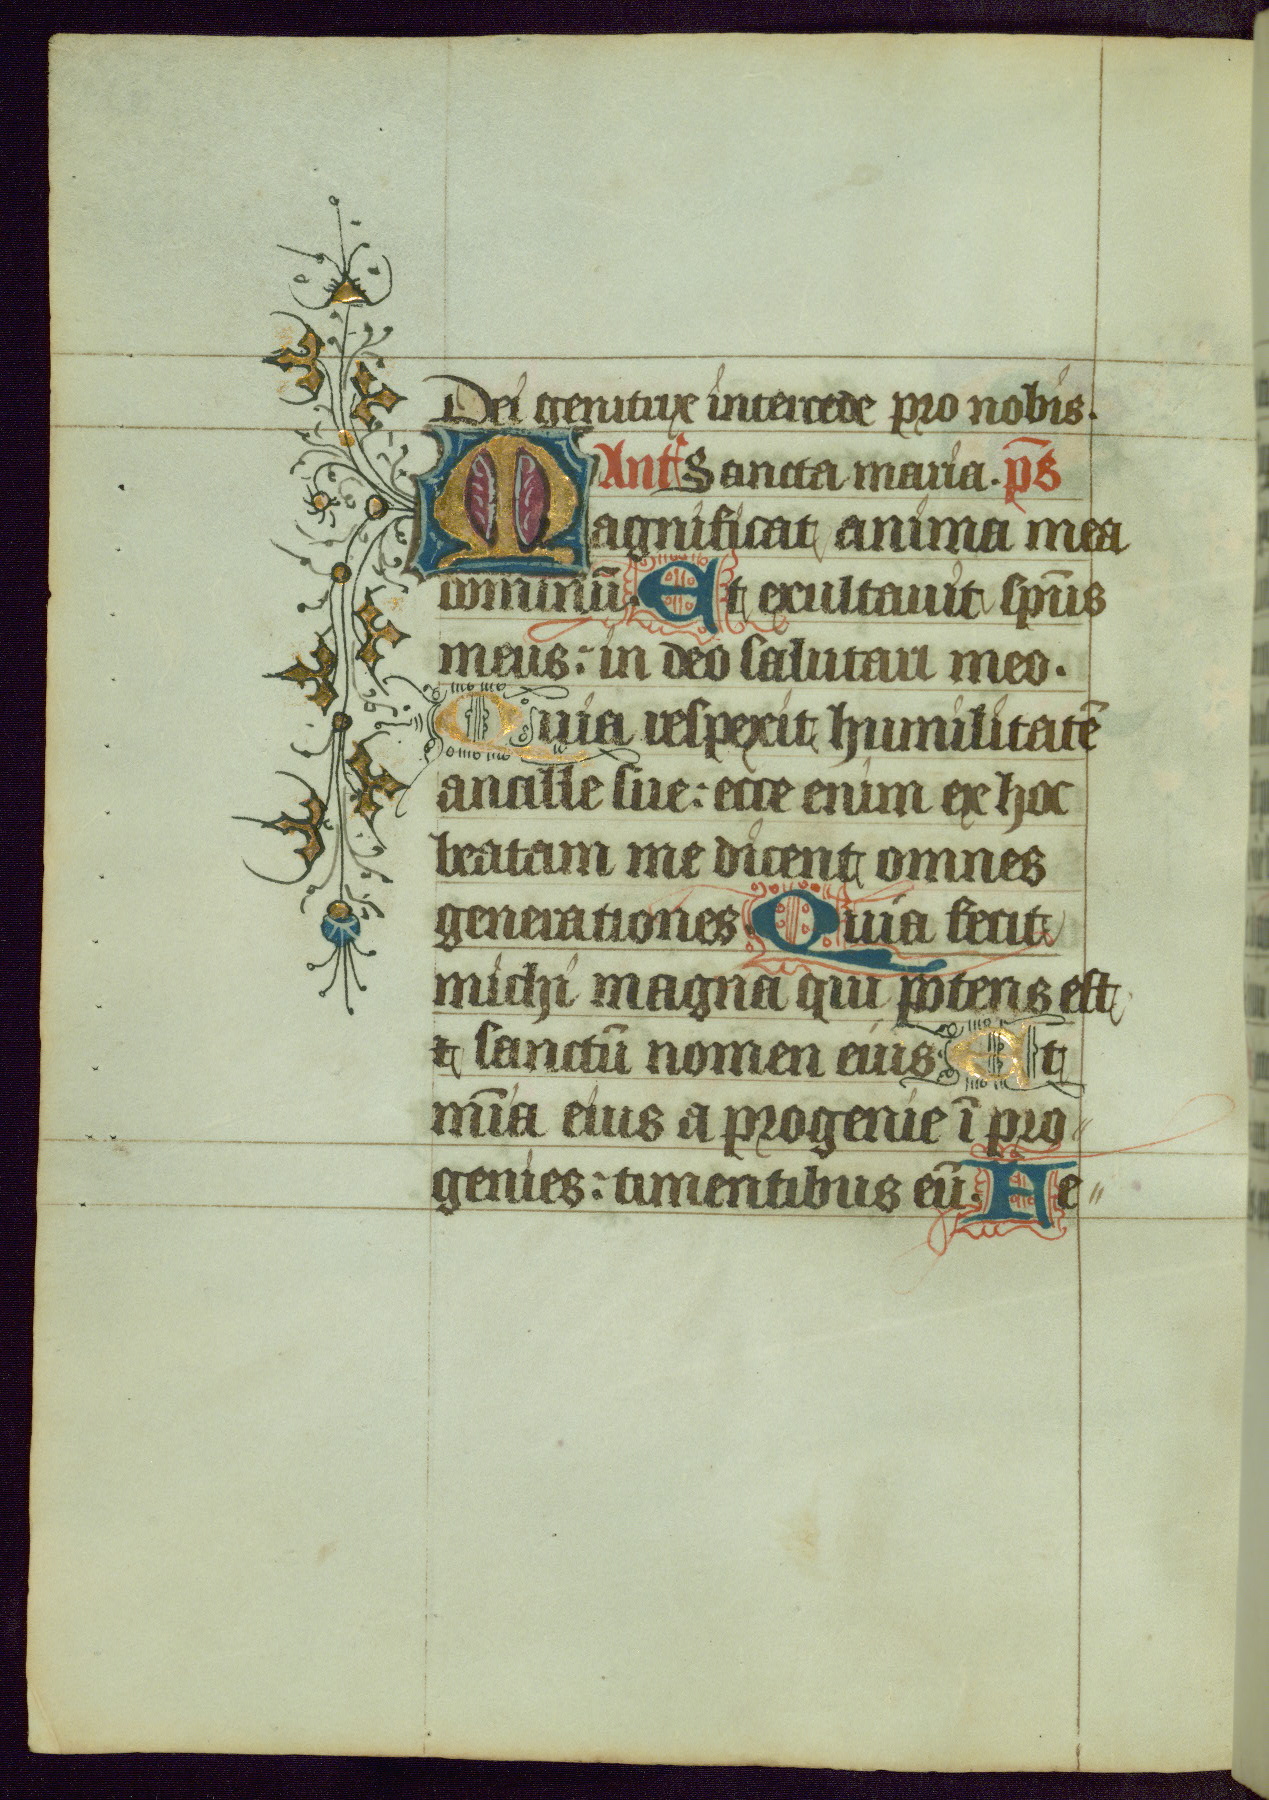 Dei genitrix intercede pro nobis.
Ant̃ Sancta maria. p̄s
Magnificat anima mea
dominū. Et exultauit sp̄us
meus: in deo salutari meo.
Quia respexit humilitatē
ancille sue: ecce enim ex hoc
beatam me dicent omnes
generationes. Quia fecit
michi magna qui potens est
⁊ sanctū nomen eius. Et
m̄ia eius a progenie ī pro
genies: timentibus eū. Fe